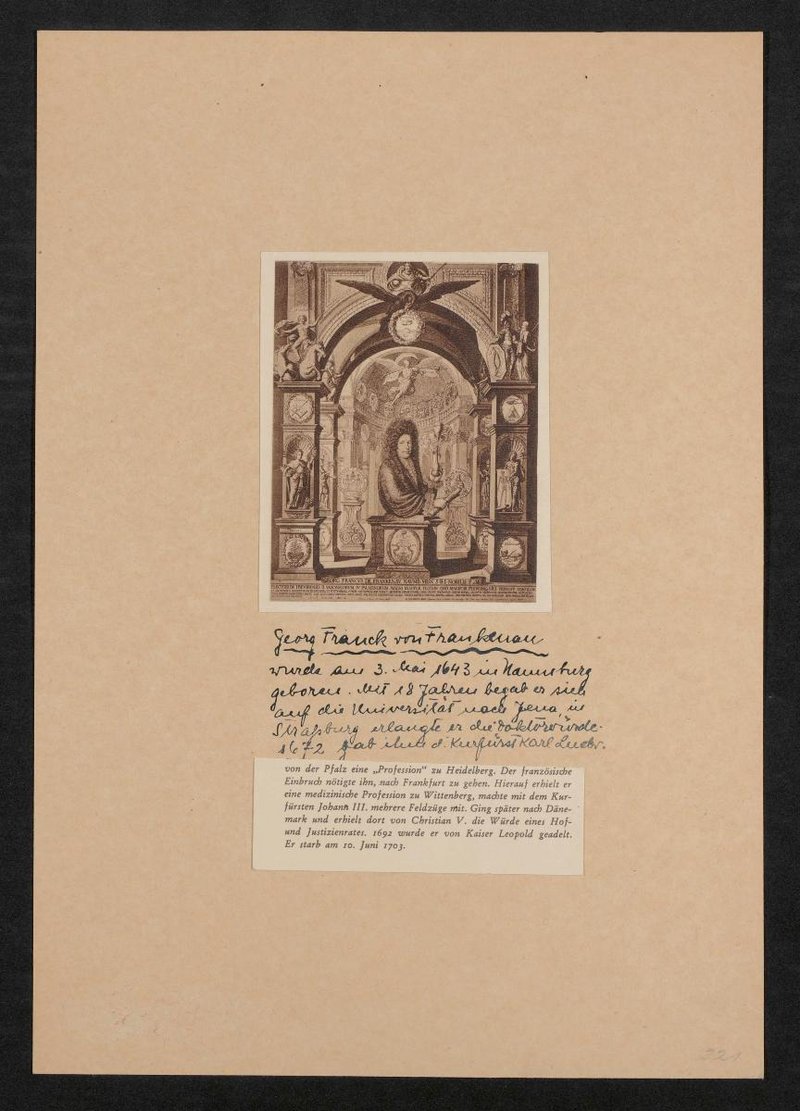 GEORG. FRANCUS DE FRANKENAU
Georg Franck von Frankenau
wurde am 3. Mai 1643 in Naumburg
geboren. Mit 18 Jahren begab er sich
auf die Universität nach Jena in
Straßburg erlangte er die Doktorwürde.
1672 gab ihm d. Kurfürst Karl Ludw.
von der Pfalz eine „Profession“ zu Heidelberg. Der französische
Einbruch nötigte ihn, nach Frankfurt zu gehen. Hierauf erhielt er
eine medizinische Profession zu Wittenberg, machte mit dem Kur-
fürsten Johann III. mehrere Feldzüge mit. Ging später nach Däne-
mark und erhielt dort von Christian V. die Würde eines Hof-
und Justizienrates. 1692 wurde er von Kaiser Leopold geadelt.
Er starb am 10. Juni 1703.
221